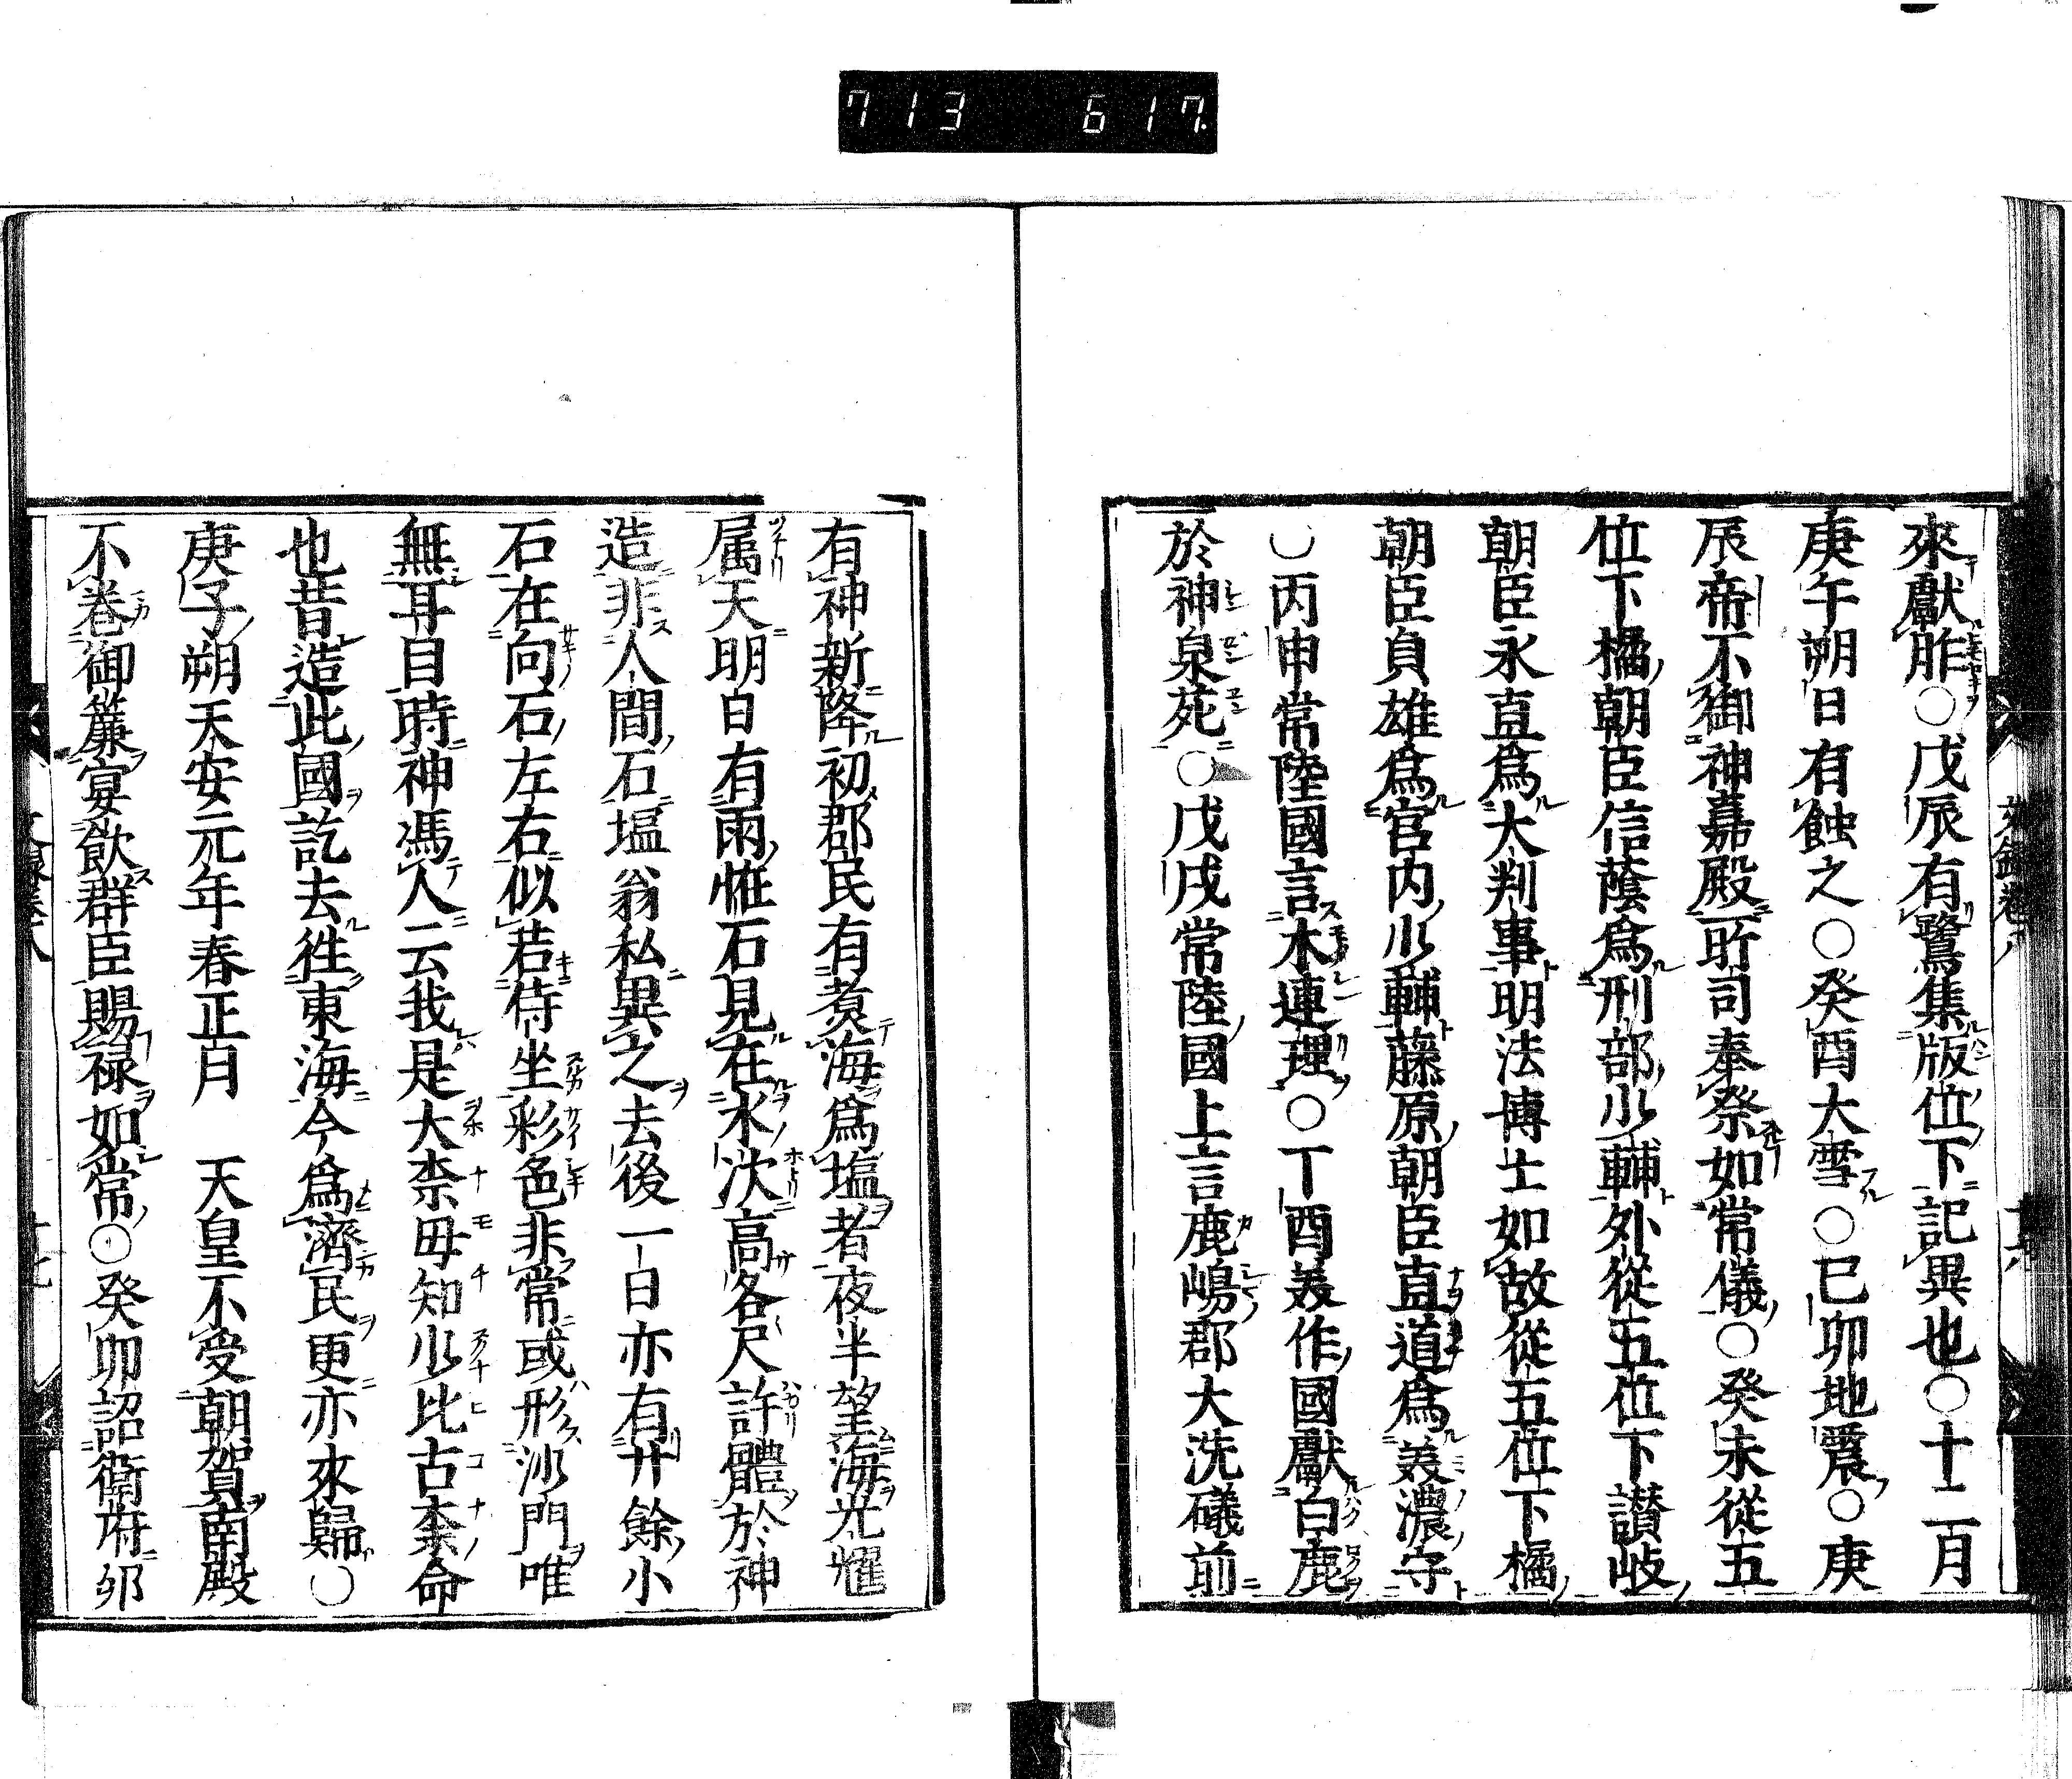 713 617
來獻胙○戊辰有鷺集版位下記異也○十二月
庚午朔日有蝕之○癸酉大雪○己卯地震○庚
辰帝不御神嘉殿所司奉祭如常儀○癸未從五
位下橘朝臣信蔭爲刑部少輔外從五位下讃岐
朝臣永直爲大判事明法博士如故從五位下橘
朝臣貞雄爲宮内少輔藤原朝臣直道爲美濃守
○丙申常陸國言木連理○丁酉美作國獻白鹿
於神泉苑○戊戌常陸國上言鹿嶋郡大洗礒前
有神新降初郡民有煮海爲塩者夜半望海光耀
属天明日有兩恠石見在水次高各尺許體於神
造非人間石塩翁私異之去後一日亦有廿餘小
石在向石左右似若侍坐彩色非常或形沙門唯
無耳目時神馮人云我是大柰毋知少比古柰命
也昔造此國訖去徃東海今爲濟民更亦來歸○
庚子朔天安元年春正月　天皇不受朝賀南殿
不卷御簾宴飲群臣賜禄如常○癸卯詔衛府卯